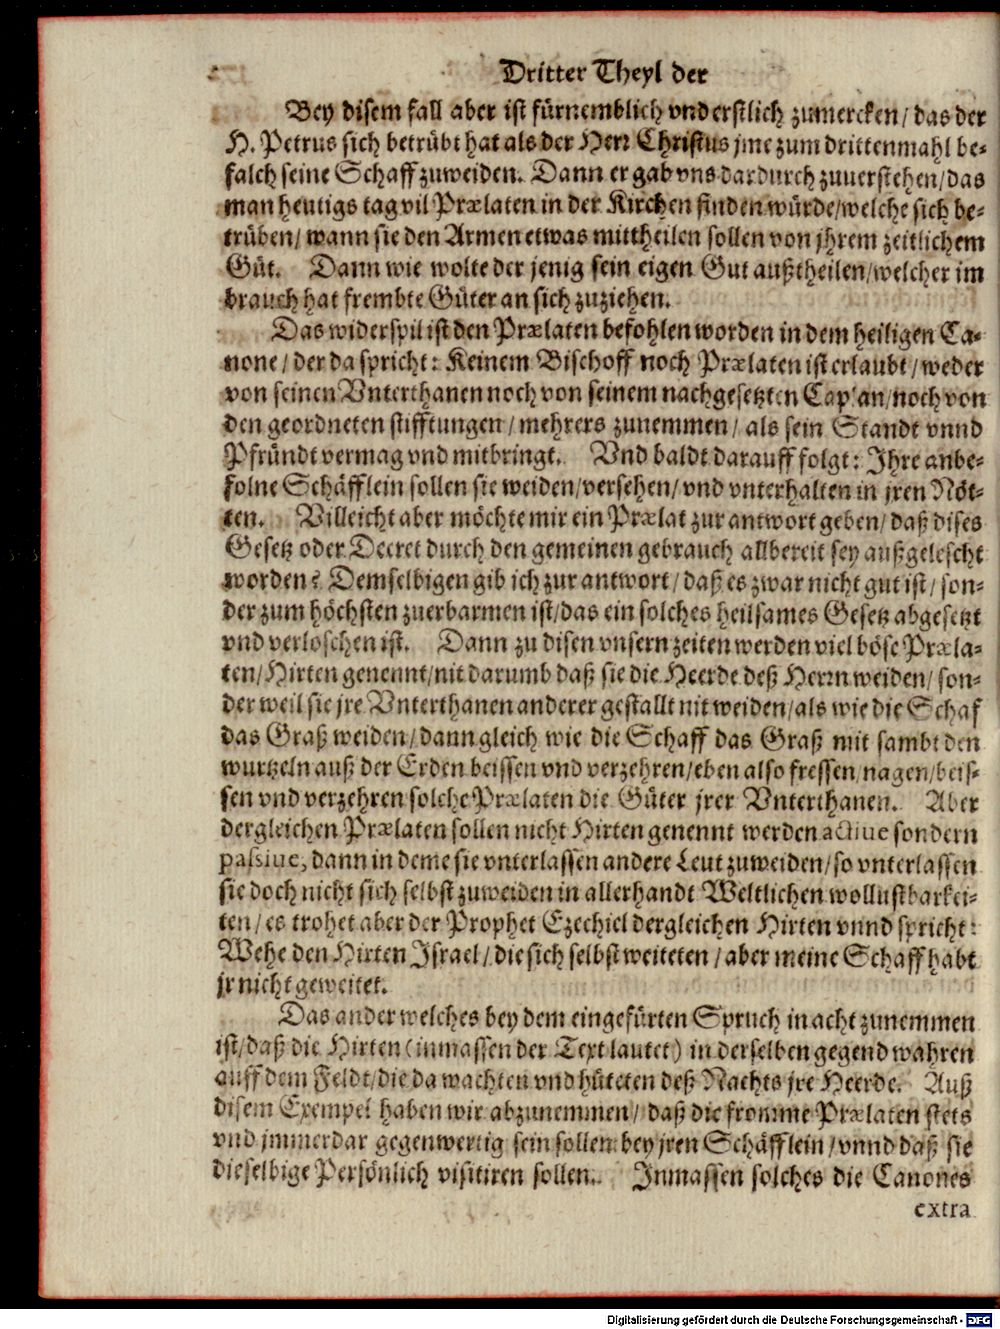 Dritter Theyl der
Bey disem fall aber ist fürnemblich vnd erstlich zumercken/ das der
H. Petrus sich betrübt hat als der Herr Christus jme zum drittenmahl be-
falch seine Schaff zuweiden. Dann er gab vns dardurch zuuerstehen/ das
man heutigs tag vil Prælaten in der Kirchen finden würde/ welche sich be-
trüben/ wann sie den Armen etwas mittheilen sollen von jhrem zeitlichem
Güt. Dann wie wolte der jenig sein eigen Gut außtheilen/ welcher im
brauch hat frembte Güter an sich zuziehen.
Das widerspil ist den Prælaten befohlen worden in dem heiligen Ca-
none/ der da spricht: Keinem Bischoff noch Prælaten ist erlaubt/ weder
von seinen Vnterthanen noch von seinem nachgesetzten Caplan/ noch von
den geordneten stifftungen/ mehrers zunemmen/ als sein Standt vnnd
Pfründt vermag vnd mitbringt. Vnd baldt darauff folgt: Ihre anbe-
folne Schäfflein sollen sie weiden/ versehen/ vnd vnterhalten in jren Nöt-
ten. Villeicht aber möchte mir ein Prælat zur antwort geben/ daß dises
Gesetz oder Decret durch den gemeinen gebrauch allbereit sey außgelescht
worden? Demselbigen gib ich zur antwort/ daß es zwar nicht gut ist/ son-
der zum höchsten zuerbarmen ist/ das ein solches heilsames Gesetz abgesetzt
vnd verloschen ist. Dann zu disen vnsern zeiten werden viel böse Præla-
ten/ Hirten genennt/ nit darumb daß sie die Heerde deß Herrn weiden/ son-
der weil sie jre Vnterthanen anderer gestallt nit weiden/ als wie die Schaf
das Graß weiden/ dann gleich wie die Schaff das Graß mit sambt den
wurtzeln auß der Erden beissen vnd verzehren/ eben also fressen/ nagen/ beis-
sen vnd verzehren solche Prælaten die Güter jrer Vnterthanen. Aber
dergleichen Prælaten sollen nicht Hirten genennt werden actiue sondern
passiue, dann in deme sie vnterlassen andere Leut zuweiden/ so vnterlassen
sie doch nicht sich selbst zuweiden in allerhandt Weltlichen wollustbarkei-
ten/ es trohet aber der Prophet Ezechiel dergleichen Hirten vnnd spricht:
Wehe den Hirten Israel/ die sich selbst weiteten/ aber meine Schaff habt
jr nicht geweitet.
Das ander welches bey dem eingefürten Spruch in acht zunemmen
ist/ daß die Hirten (inmassen der Text lautet) in derselben gegend wahren
auff dem Feldt/ die da wachten vnd hüteten deß Nachts jre Heerde. Auß
disem Exempel haben wir abzunemmen/ daß die fromme Prælaten stets
vnd jmmerdar gegenwertig sein sollen bey jren Schäfflein/ vnnd daß sie
dieselbige Persönlich visitiren sollen. Inmassen solches die Canones
extra
Digitalisierung gefördert durch die Deutsche Forschungsgemeinschaft - DFG